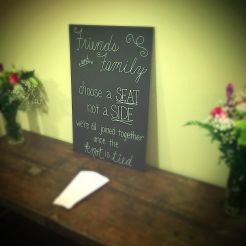 Friends
and Family
choose a SEAT
not a SIDE
we're all joined together
once the
knot is tied